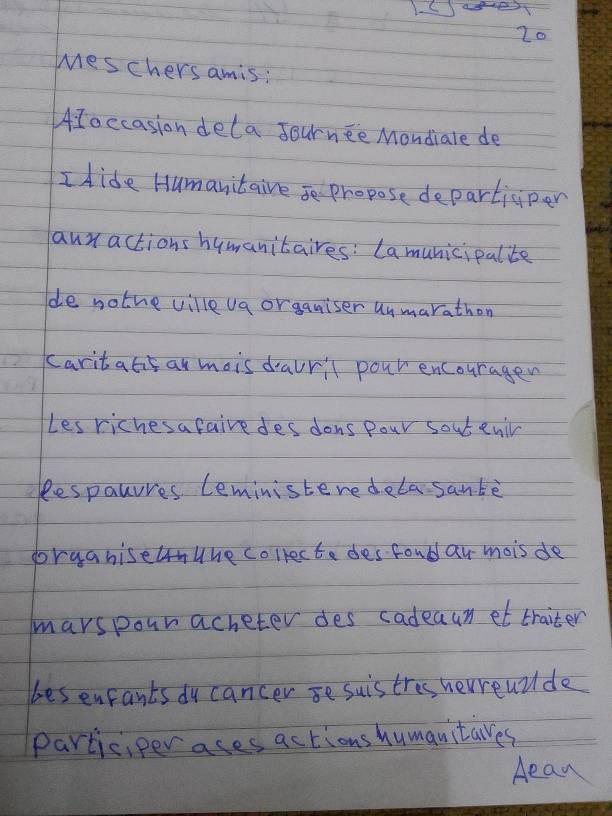 20
Mes chers amis:
A I'occasion de la Journée Mondiale de
I Aide Humanitaire Je Propose de participer
aux actions humanitaires: La municipalite
de notre ville va organiser un marathon
caritatis au mois d'avril pour encourager
Les riches a faire des dons pour soutenir
les pauvres Le ministere de La santè
organise une collecte des fond au mois de
mars pour acheter des cadeaux et traiter
Les enfants du cancer Je suis tres heureux de
participer a ses actions humanitaires